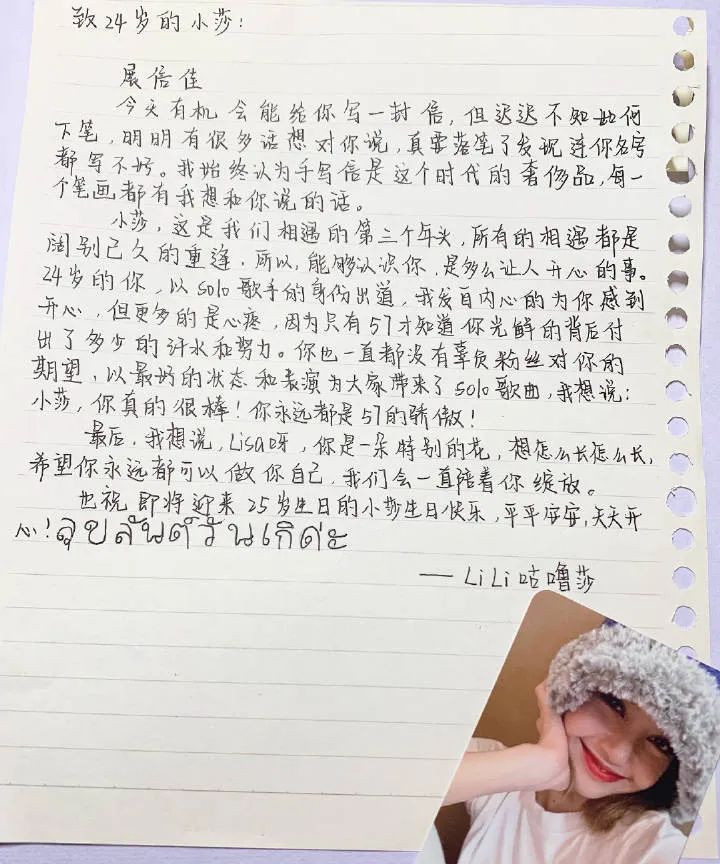 致24岁的小莎:
展信佳
今天有机会能给你写一封信,但迟迟不知如何
下笔,明明有很多话想对你说,真要落笔了发现连你名字
都写不好。我始终认为手写信是这个时代的奢侈品,每一
个笔画都有我想和你说的话。
小莎,这是我们相遇的第三个年头,所有的相遇都是
阔别已久的重逢,所以,能够认识你,是多么让人开心的事。
24岁的你,以solo歌手的身份出道,我发自内心的为你感到
开心,但更多的是心疼,因为只有57才知道你光鲜的背后付
出了多少的汗水和努力。你也一直都没有辜负粉丝对你的
期望,以最好的状态和表演为大家带来了solo歌曲,我想说:
小莎,你真的很棒!你永远都是57的骄傲!
最后,我想说,Lisa呀,你是一朵特别的花,想怎么长怎么长,
希望你永远都可以做你自己,我们会一直陪着你绽放。
也祝即将迎来25岁生日的小莎生日快乐,平平安安,天天开
心!สุขสันต์วันเกิดค่ะ
— LiLi咕噜莎